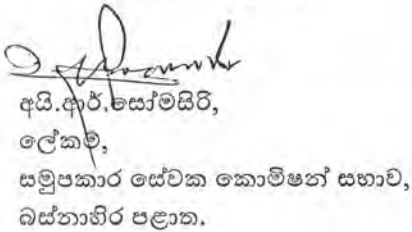 අයි.ආර්.සෝමසිරි,
ලේකම්,
සමුපකාර සේවක කොමිෂන් සභාව,
බස්නාහිර පළාත.